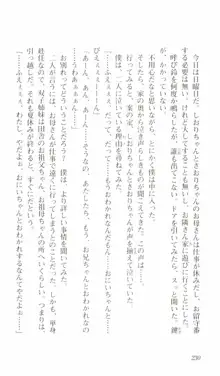 今日は日曜日だ。しおりちゃんとさおりちゃんのお母さんは仕事が休みだし、お留守番
する必要は無い。けれど大してすることも無かったし、お隣さん家に遊びに行ってみた。
呼び鈴を何度か鳴らしたが、誰も出てこない。ドアを引いてみたら、スッと開いた。鍵
不用心だなと思いながら、とりあえず僕は中に入った。
すると、家の奥から二人の泣いている声が聞こえてきた。この声は
しおりちゃんとさおりちゃんが揃って泣いていた。
僕は、二人に泣いている理由を尋ねてみた。
「……だって……だって……ふえぇ……もう……おにいちゃんとおわかれなんて……
びえぇぇぇんっ！」
「……あん、あん、あぁん……あたしたち、もう、お兄ちゃんとおわかれなのっ、
なのっ……あんあぁーん！」
どういうことだろう？　僕は、より詳しい事情を聞いてみた。
二人が言うには、お母さんが仕事で遠くに行ってしまうとのことだった。しかし、単身
赴任なので、双子姉妹は田舎のお祖父ちゃん、お祖母ちゃんの所へいくらしい。つまり、
引っ越しだ。それも夏休みが終わると、すぐにだという。
「……ふえぇぇぇ、やだよぉ……おにいちゃんとおわかれするなんてやだよぉ……
230